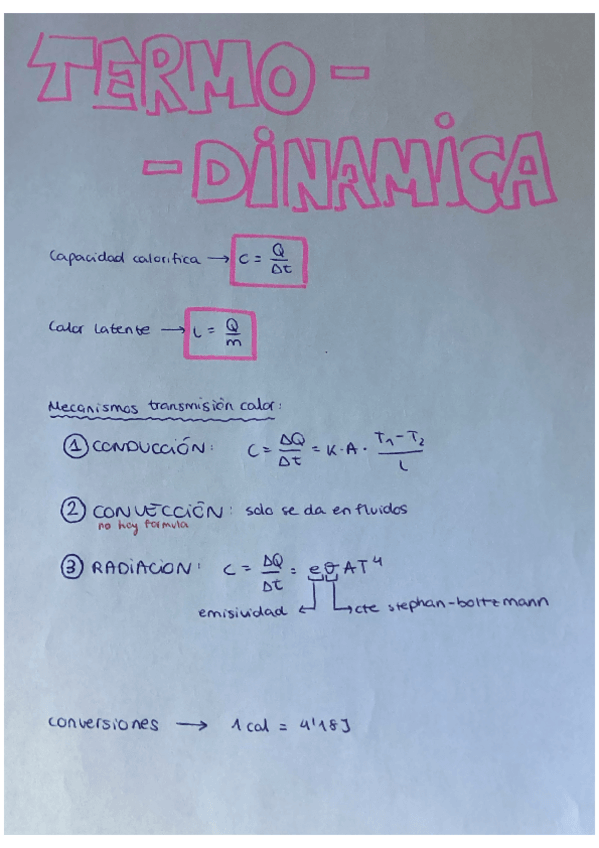 TERMO-
-DINAMICA
Capacidad calorifica → C = Q/Δt
Calor latente → L = Q/m
Mecanismos transmisión calor:
① CONDUCCIÓN: C = ΔQ/Δt = K·A· T₁-T₂/L
② CONVECCIÓN: solo se da en fluidos
no hay formula
③ RADIACION: C = ΔQ/Δt = eσAT⁴
emisividad ← → cte stephan-boltzmann
conversiones → 1 cal = 4'18J